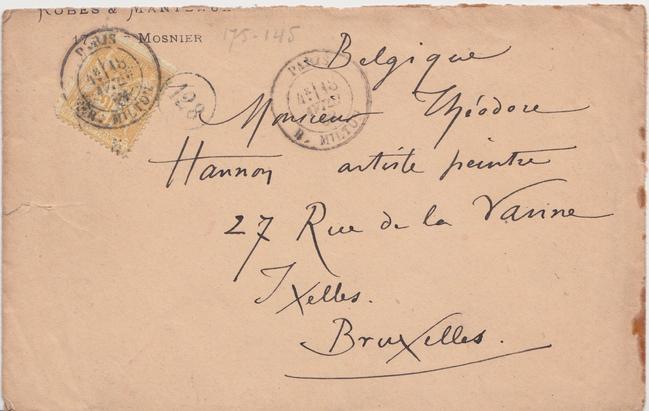 ROBES & MANTEAUX
MOSNIER
175-145
PARIS
R. MILTON
128
PARIS
R. MILTON
Belgique
Monsieur Théodore
Hannon artiste peintre
27 Rue de la Vanne
Ixelles.
Bruxelles.